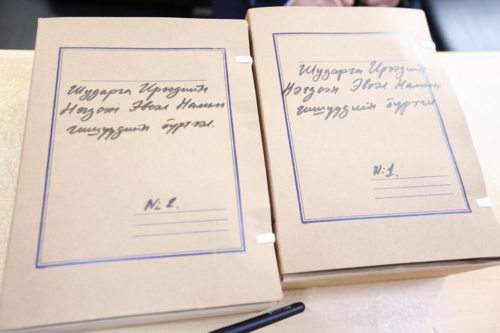 Шударга Иргэдийн
Нэгдсэн Эвсэл Намын
гишүүдийн бүртгэл.
№ 2.
Шударга Иргэдийн
Нэгдсэн Эвсэл Намын
гишүүдийн бүртгэл
№ 1.